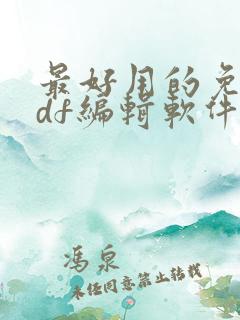 最好用的免
df編輯軟件
馮泉
未经同意禁止转载